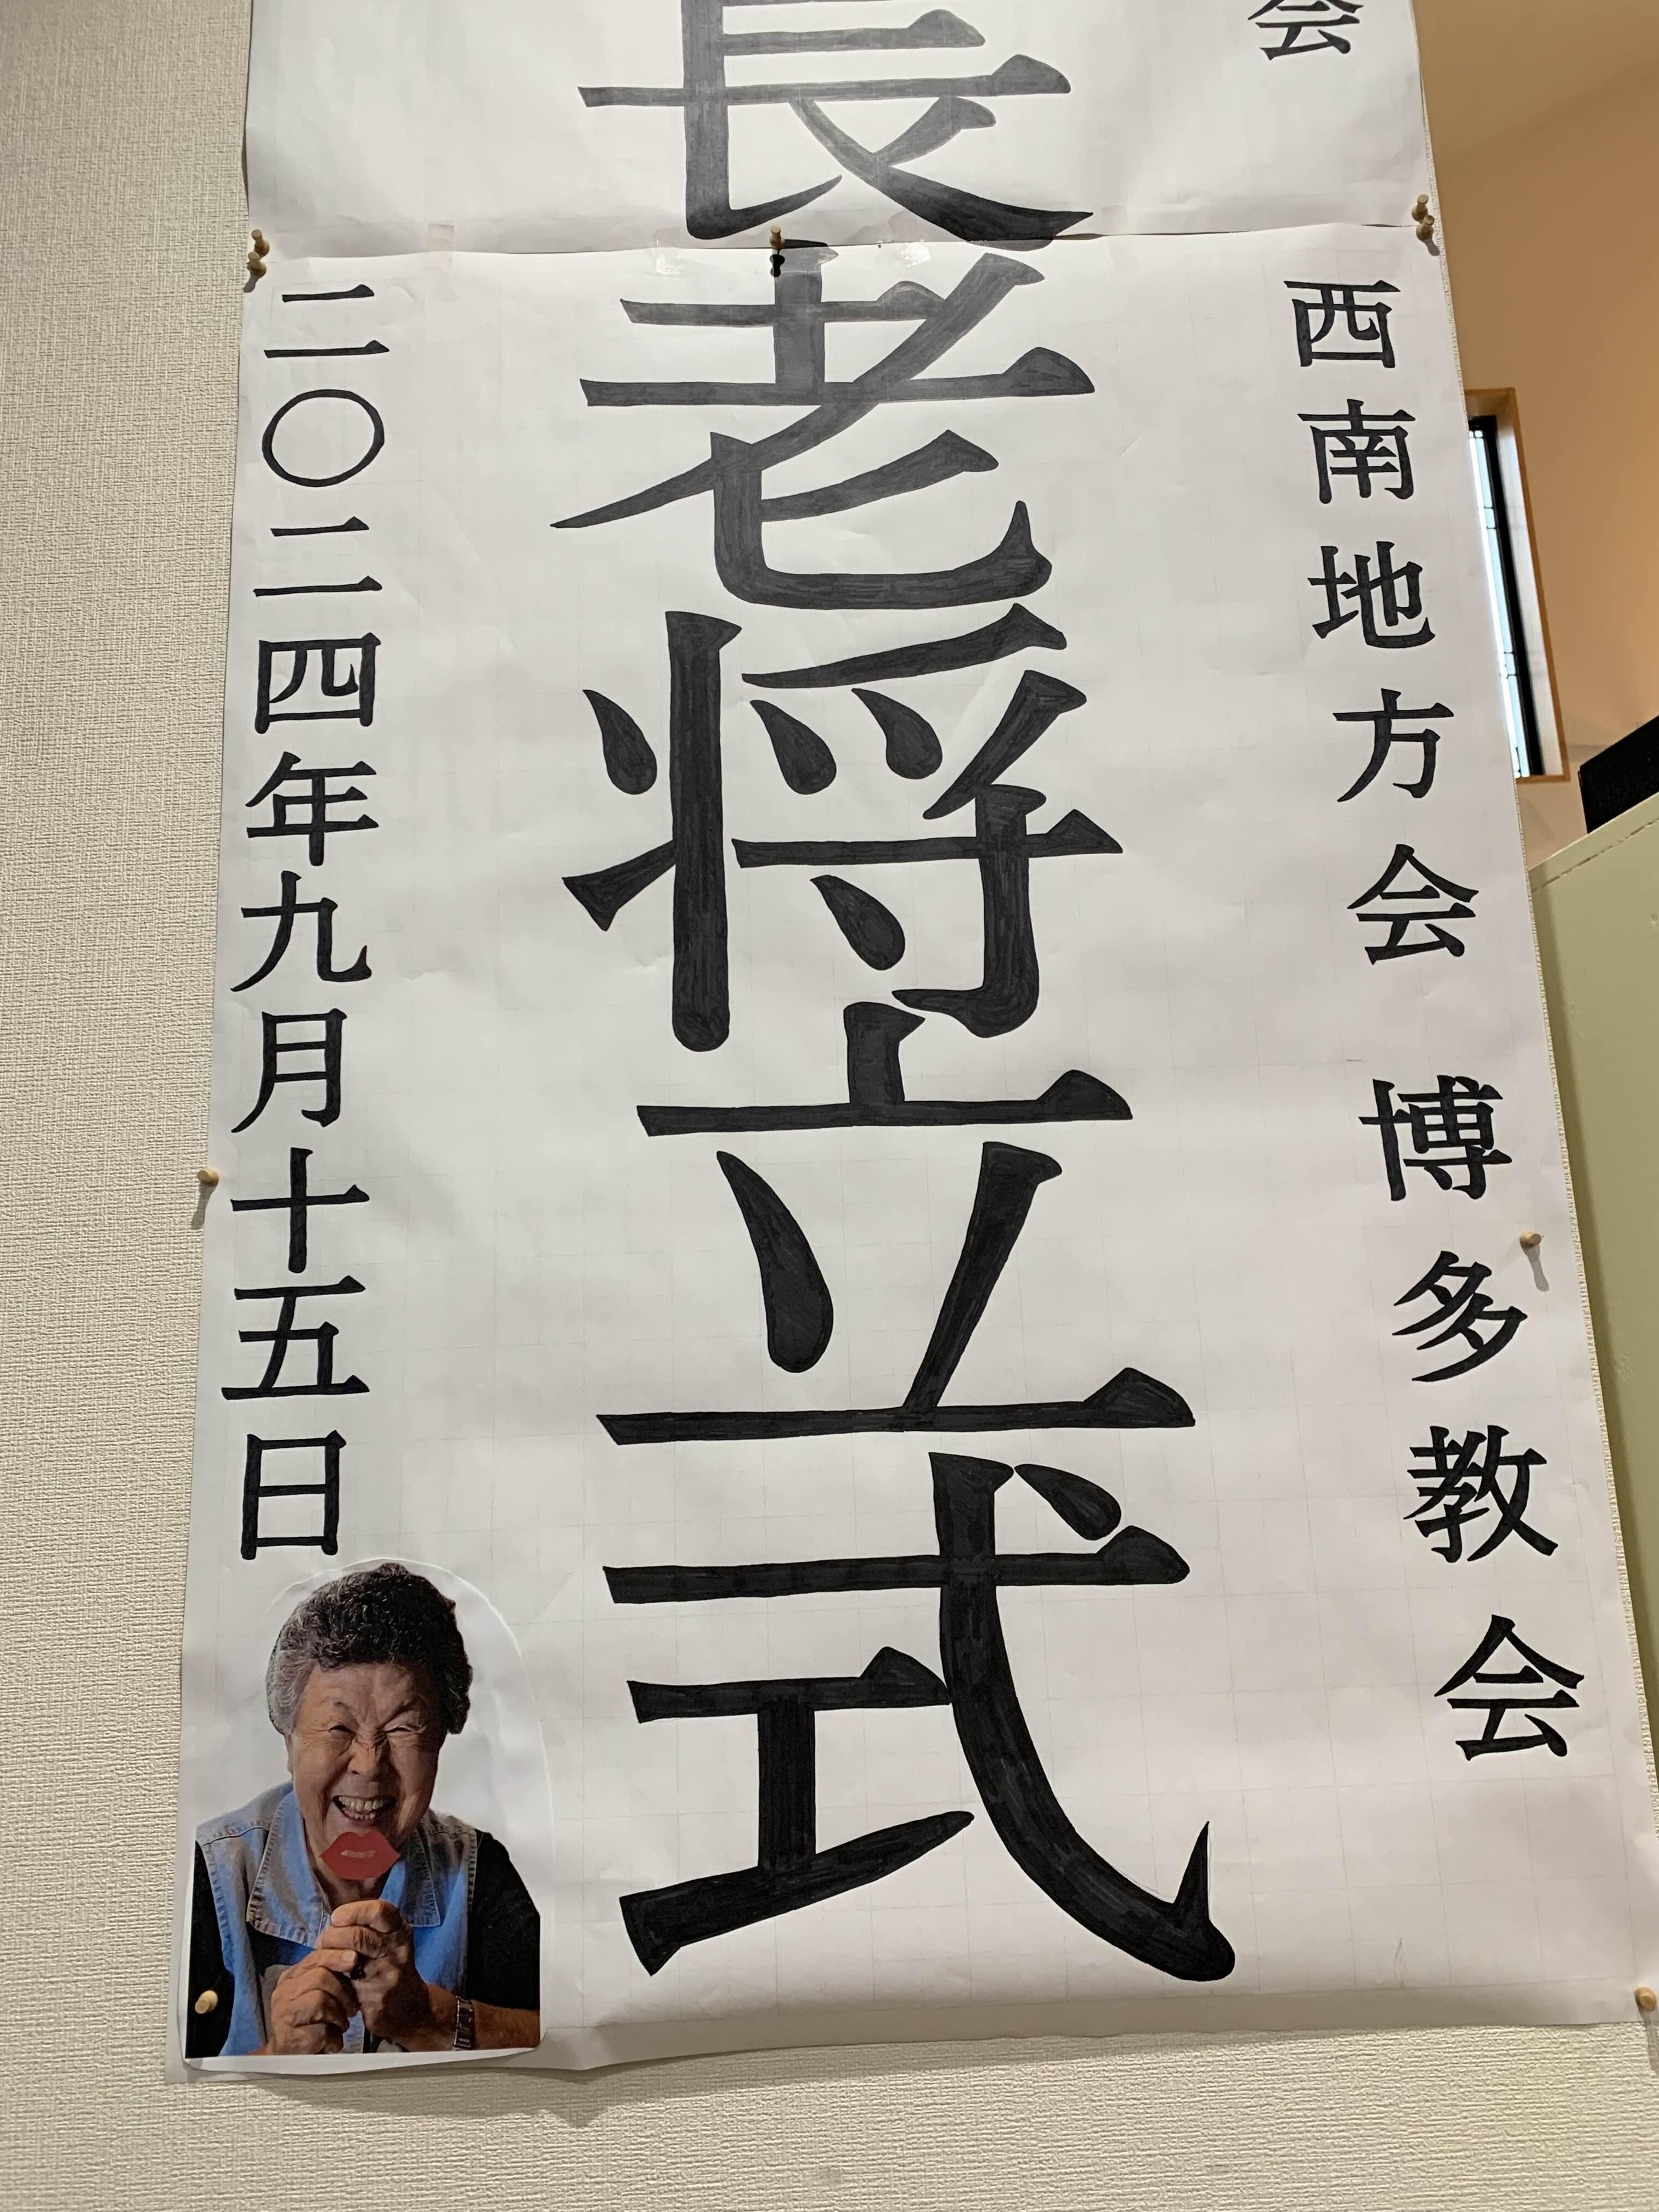 会 西南地方会 博多教会
長老将立式
二〇二四年九月十五日